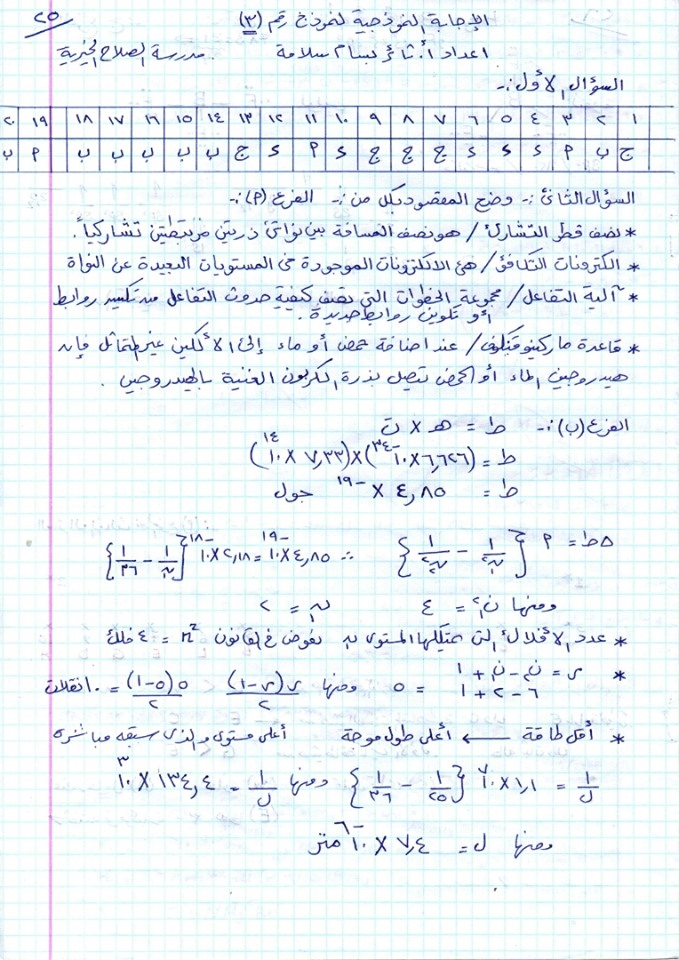 ٢٥
الإجابة النموذجية لنموذج رقم (٣)
اعداد أ. ثائر بسام سلامة مدرسة الصلاح الخيرية.
السؤال الأول :-
١ ٢ ٣ ٤ ٥ ٦ ٧ ٨ ٩ ١٠ ١١ ١٢ ١٣ ١٤ ١٥ ١٦ ١٧ ١٨ ١٩ ٢٠
ج ب P د د د ج ج ج د P د ج ب ب ب ب ب P ب
السؤال الثاني :- وضح المقصود بكل من :- الفرع (P) :-
* نصف قطر التشارك / هو نصف المسافة بين نواتي ذرتين مرتبطتين تشاركياً.
* الكترونات التكافؤ / هي الالكترونات الموجودة في المستويات البعيدة عن النواة
* آلية التفاعل / مجموعة الخطوات التي تصف كيفية حدوث التفاعل من تكسير روابط
أو تكوين روابط جديدة.
* قاعدة ماركينوفنيكوف / عند اضافة حمض أو ماء إلى الألكين غير المتماثل فإن
هيدروجين الماء أو الحمض تتصل بذرة الكربون الغنية بالهيدروجين.
الفرع (ب) :- ط = هـ × ت
ط = (٦,٦٢٦ × ١٠-٣٤) × (٧,٣٣ × ١٠١٤)
ط = ٤,٨٥ × -١٩ جول
∆ط = P {١/ن٢ - ١/ن٢} ∴ ٤,٨٥ × ١٠-١٩ = ٢,١٨ × ١٠-١٨ {١/ن٢ - ١/٣٦}
ومنها ن٢ = ٤ ن = ٢
* عدد الأفلاك التي يمتلكها المستوى ن نعوض في القانون n² = ٤ فلك
* ر = ن٢ - ن١ + ١
٦ - ٢ + ١ = ٥ ومنها ر(ر-١)/٢ = ٥(٥-١)/٢ = ١٠ انتقالات
* أقل طاقة ← أعلى طول موجة أعلى مستوى والذي سبقه مباشرة
١/ل = ١,١ × ١٠٧ {١/٢٥ - ١/٣٦} ومنها ١/ل = ١٣٤,٤ × ١٠٣
ومنها ل = ٧,٤ × ١٠-٦ متر